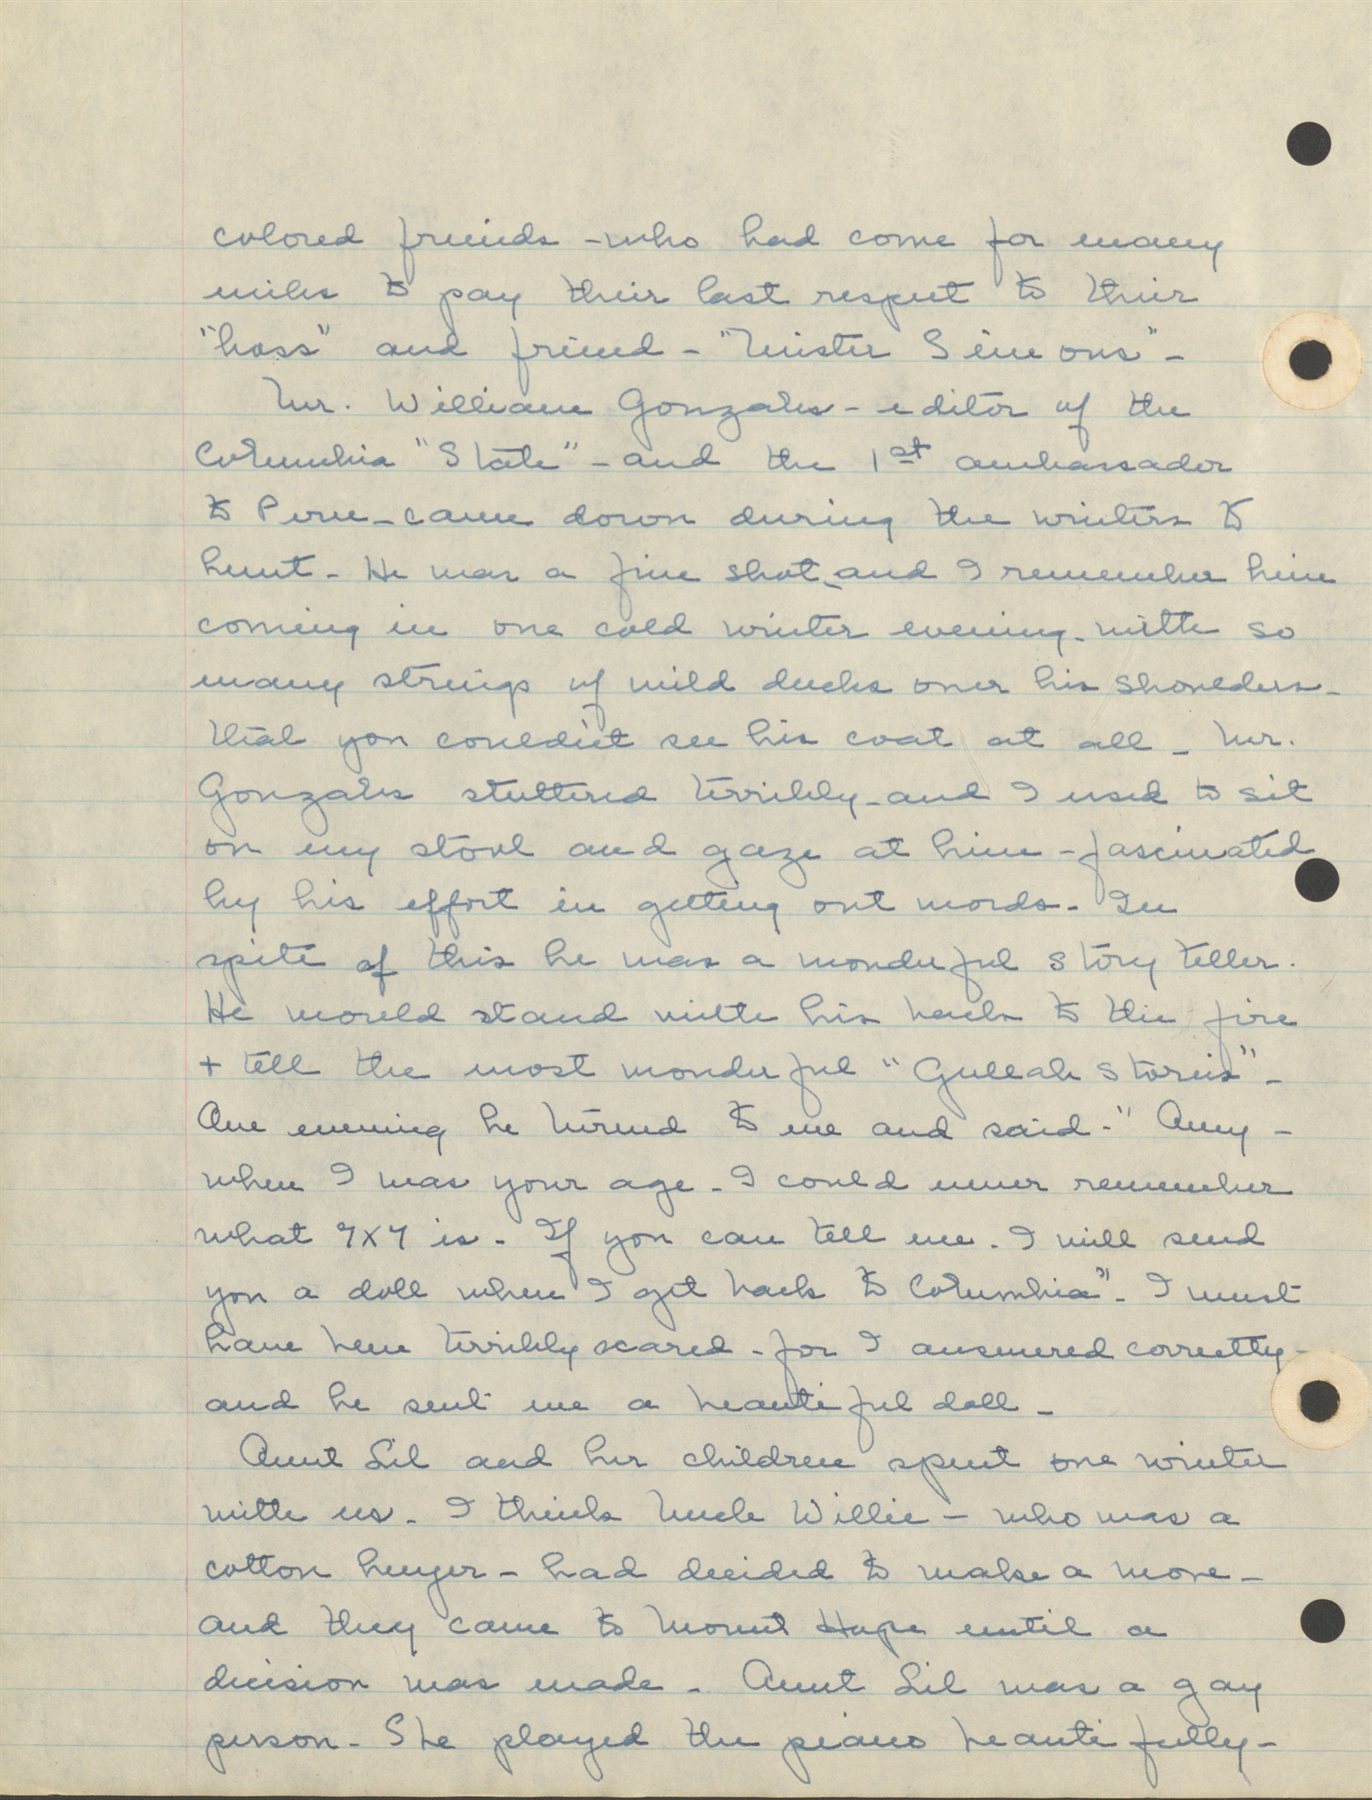 colored friends - who had come for many
miles to pay their last respect to their
"boss" and friend - "Mister Simons" -
Mr. William Gonzales - editor of the
Columbia "State" - and the 1st ambassador
to Peru - came down during the winters to
hunt - He was a fine shot - and I remember him
coming in one cold winter evening - with so
many strings of wild ducks over his shoulders -
that you couldn't see his coat at all - Mr.
Gonzales stuttered terribly - and I used to sit
on my stool and gaze at him - fascinated
by his effort in getting out words - In
spite of this he was a wonderful story teller.
He would stand with his back to the fire
+ tell the most wonderful "Gullah stories" -
One evening he turned to me and said - "Amy -
when I was your age - I could never remember
what 7x7 is - If you can tell me - I will send
you a doll when I get back to Columbia" - I must
have been terribly scared - for I answered correctly -
and he sent me a beautiful doll -
Aunt Lil and her children spent one winter
with us - I think Uncle Willie - who was a
cotton buyer - had decided to make a move -
and they came to Mount Hope until a
decision was made - Aunt Lil was a gay
person - She played the piano beautifully -